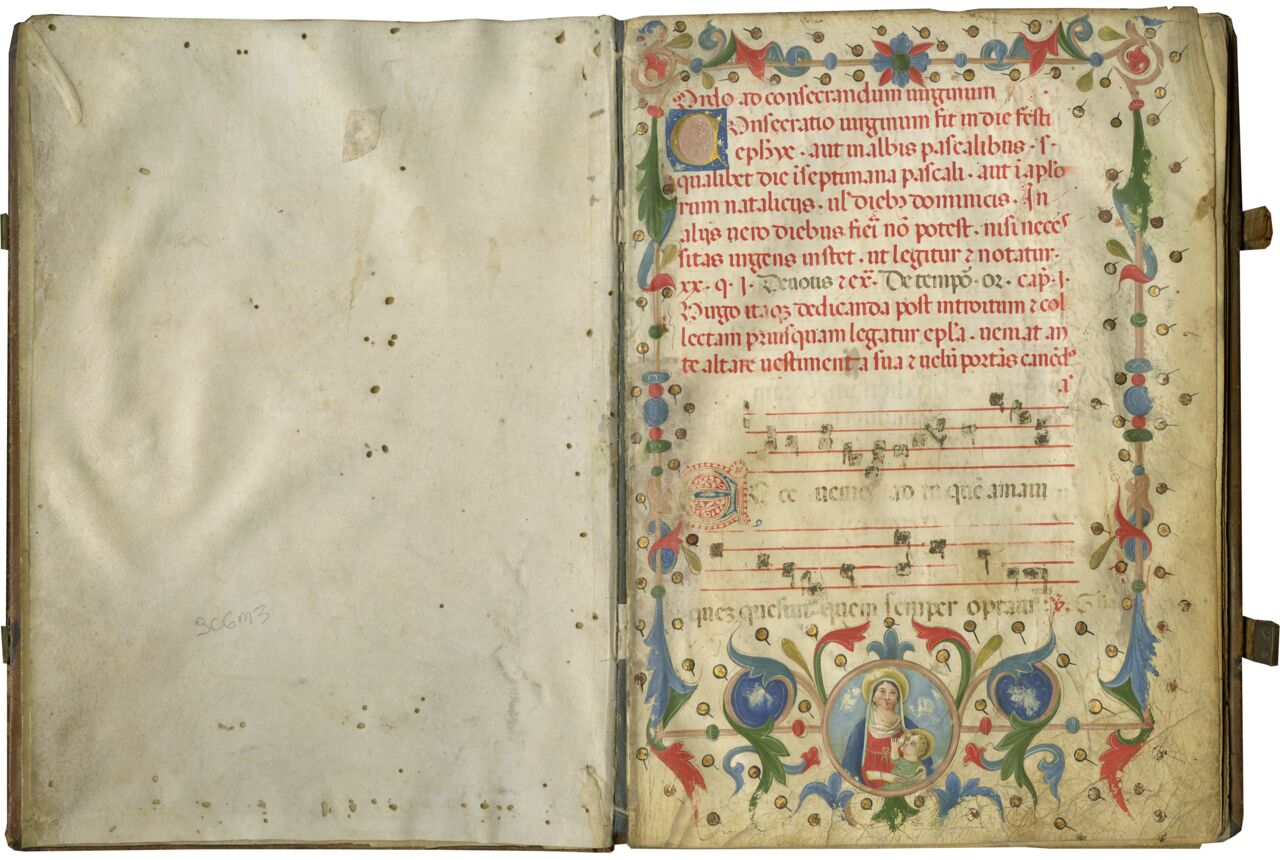 3C6M3
Ordo ad consecrandum uirginum
Consecratio uirginum fit in die festi
ephye · aut in albis pascalibus · s ·
qualibet die i septimana pascali · aut i apło
rum nataliciis · ul dieb dominicis · In
aliis uero diebus fieri nō potest · nisi neces
sitas urgens instet · ut legitur ⁊ notatur ·
xx · q · i · Deuotis ⁊ ex̄ · De tempō · or · cap · i ·
Uirgo itaqꝫ dedicanda post introitum ⁊ col
lectam priusquam legatur epła · ueniat an
te altare uestimenta sua ⁊ uelū portās
a
Ecce uenio ad te quē amaui
quez quesiui quem semper optaui ·